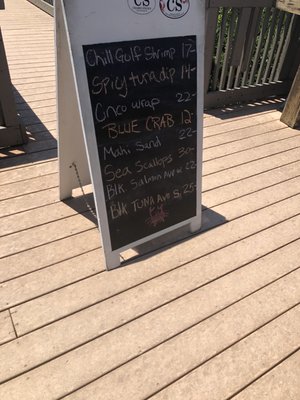 CS CS
Chill Golf Shrimp 17-
Spicy tuna dip 14-
Cnco wrap 22-
BLUE CRAB 12-
Mahi Sand 22-
Sea Scallops 30-
Blk Salmon Ave 22
Blk TUNA Avo S 25-